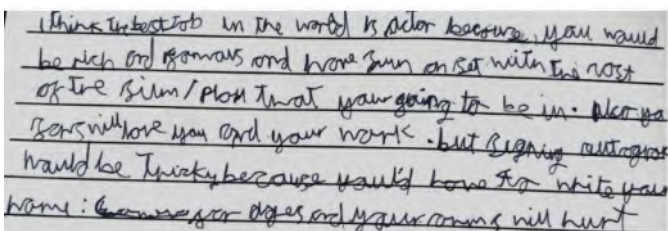 I think the best Job in the world is actor because, you would
be rich and famous and have fun on set with the rest
of the film/play that your going to be in. Also your
fans will love you and your work. but signing autograp
would be tricky because you'd have to write your
name: for ages and your arms will hurt